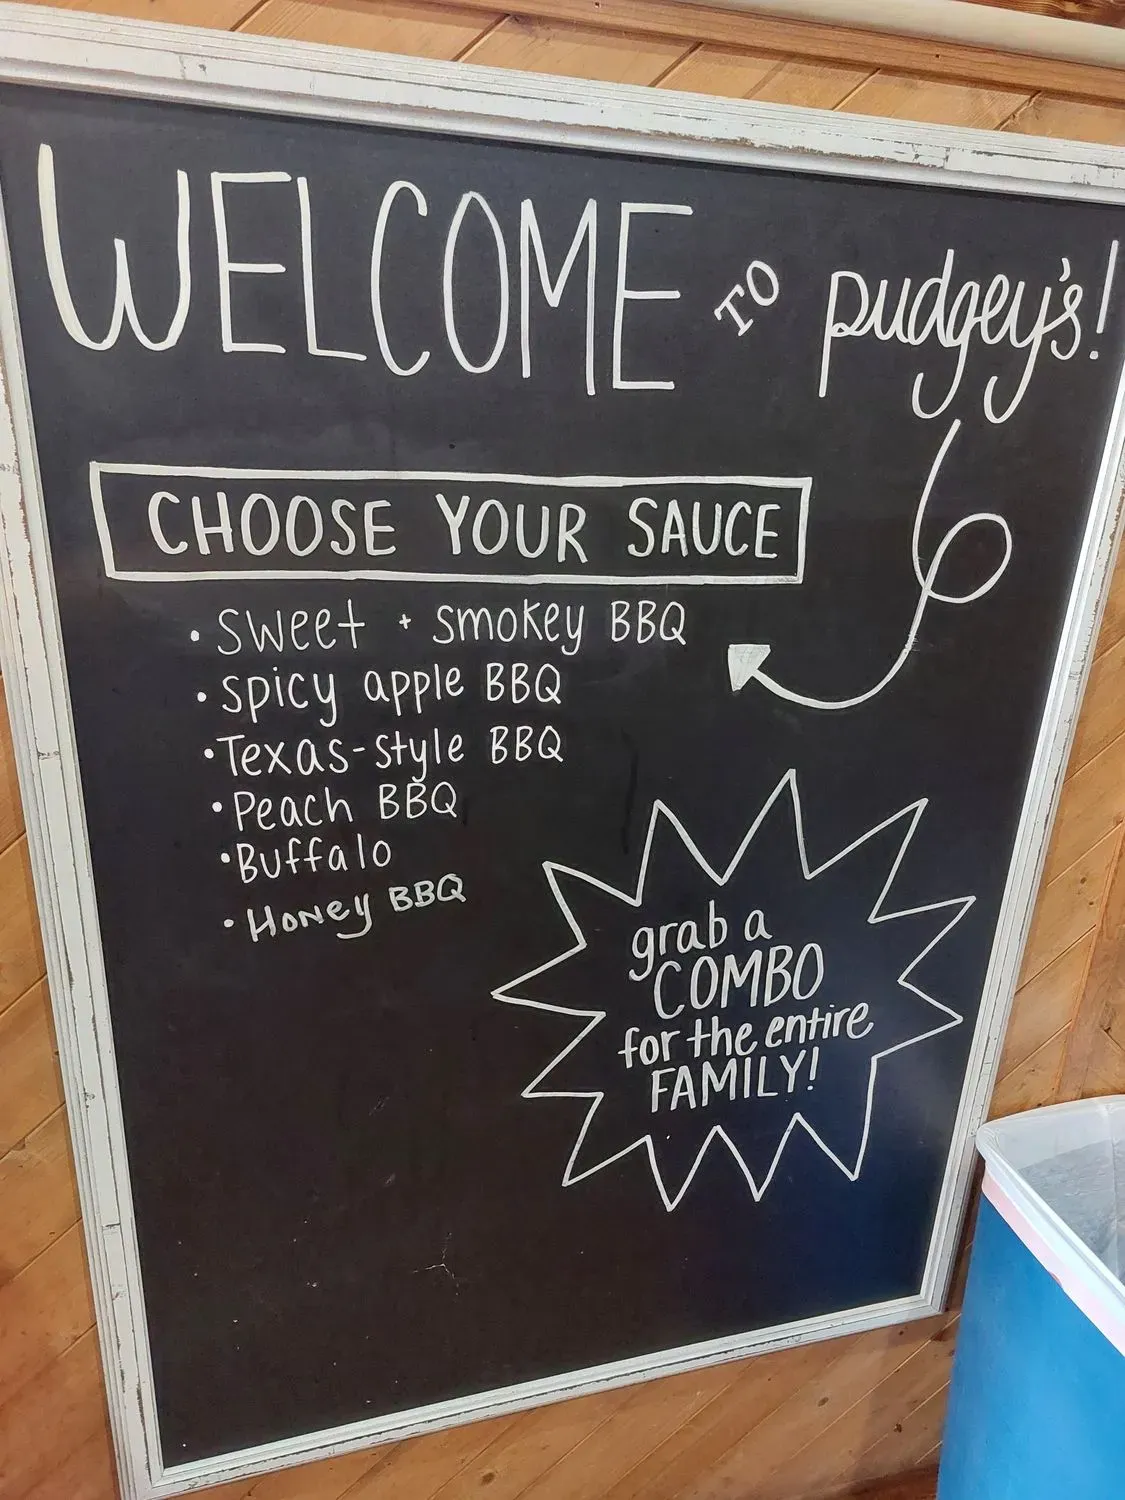 WELCOME TO pudgey's!
CHOOSE YOUR SAUCE
• Sweet + Smokey BBQ
• Spicy apple BBQ
• Texas-style BBQ
• Peach BBQ
• Buffalo
• Honey BBQ
grab a
COMBO
for the entire
FAMILY!